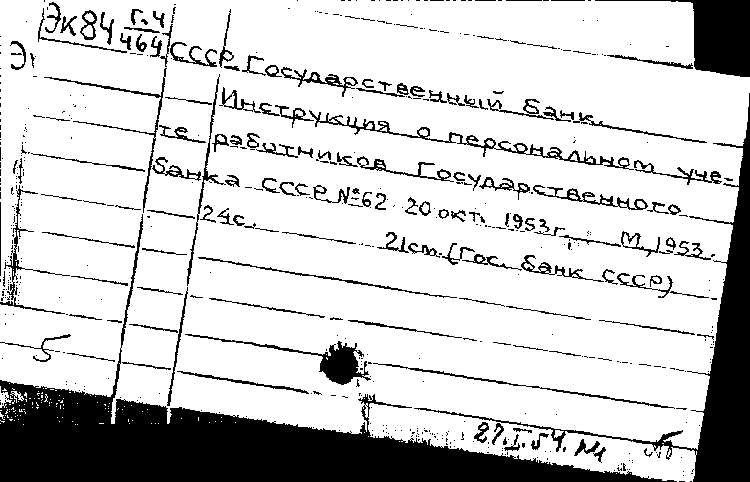 Эк84 Г.4
464
СССР. Государственный банк.
Инструкция о персональном уче-
те работников Государственного
банка СССР №62 20 окт. 1953г. М., 1953.
24с. 21см. (Гос. банк СССР)
5
27.I.54.